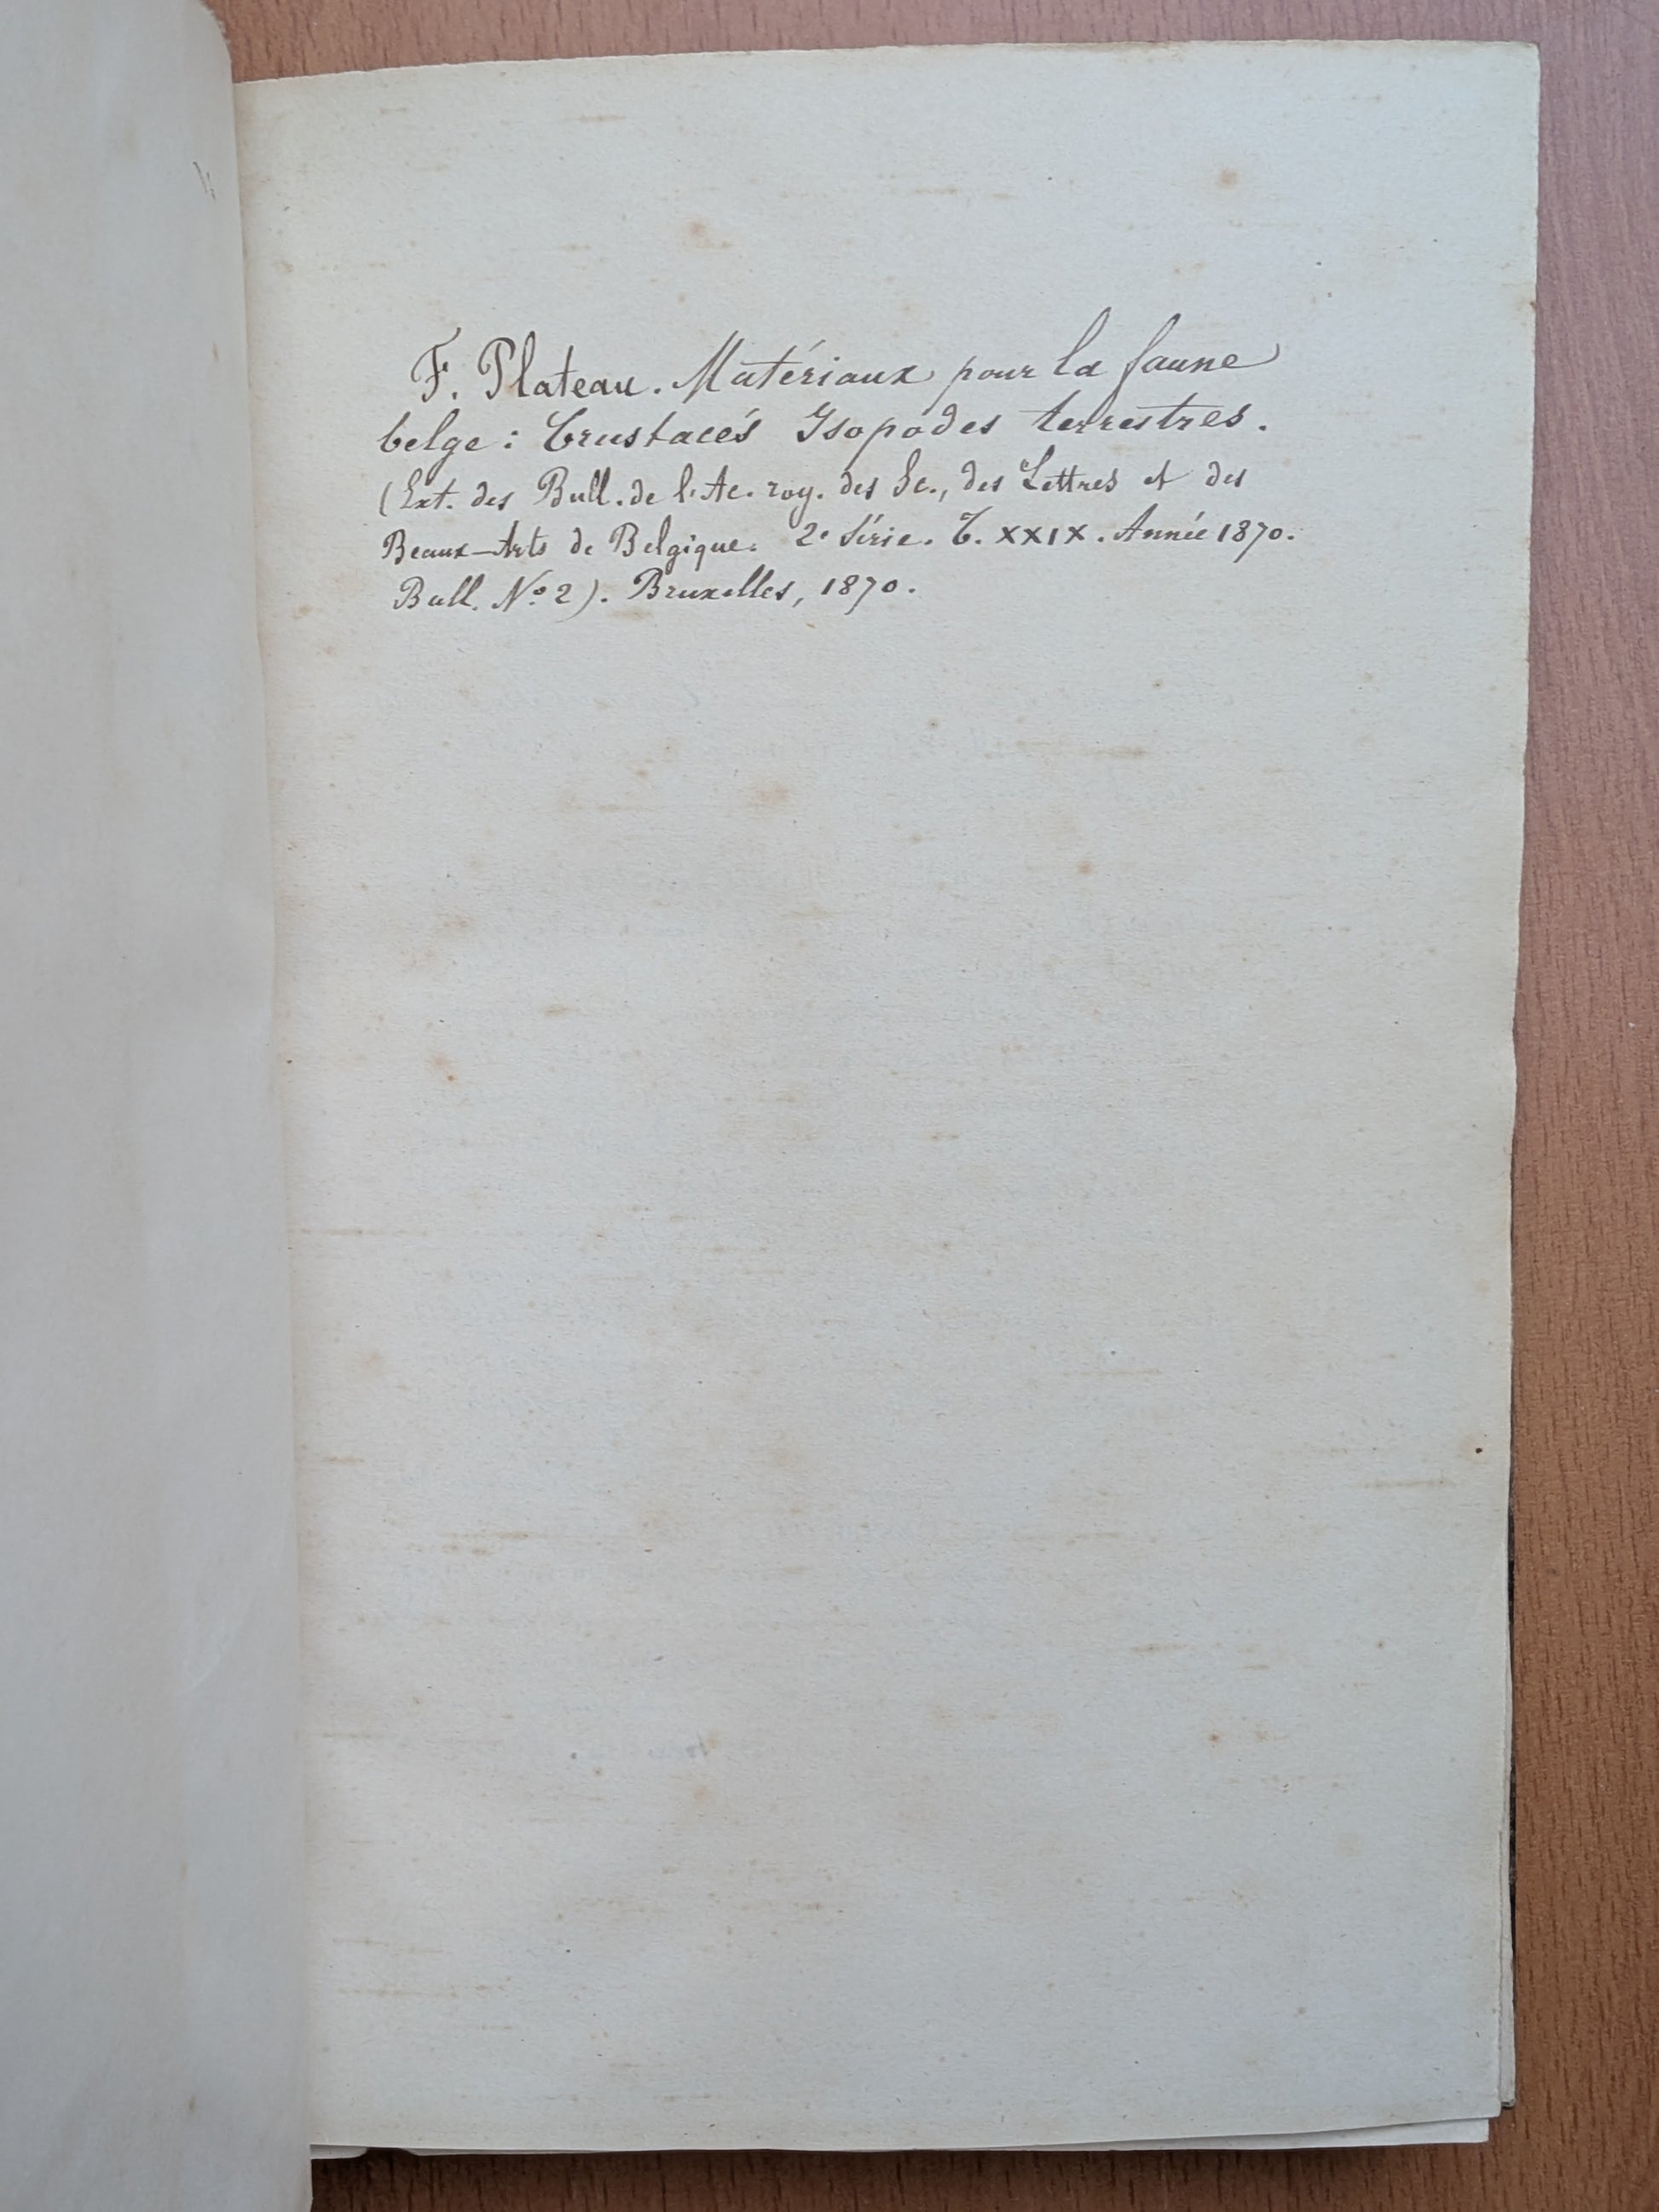 F. Plateau. Matériaux pour la faune
belge : Crustacés Isopodes terrestres.
(Ext. des Bull. de l'Ac. roy. des Sc., des Lettres et des
Beaux-Arts de Belgique. 2e Série. T. XXIX. Année 1870.
Bull. No. 2). Bruxelles, 1870.